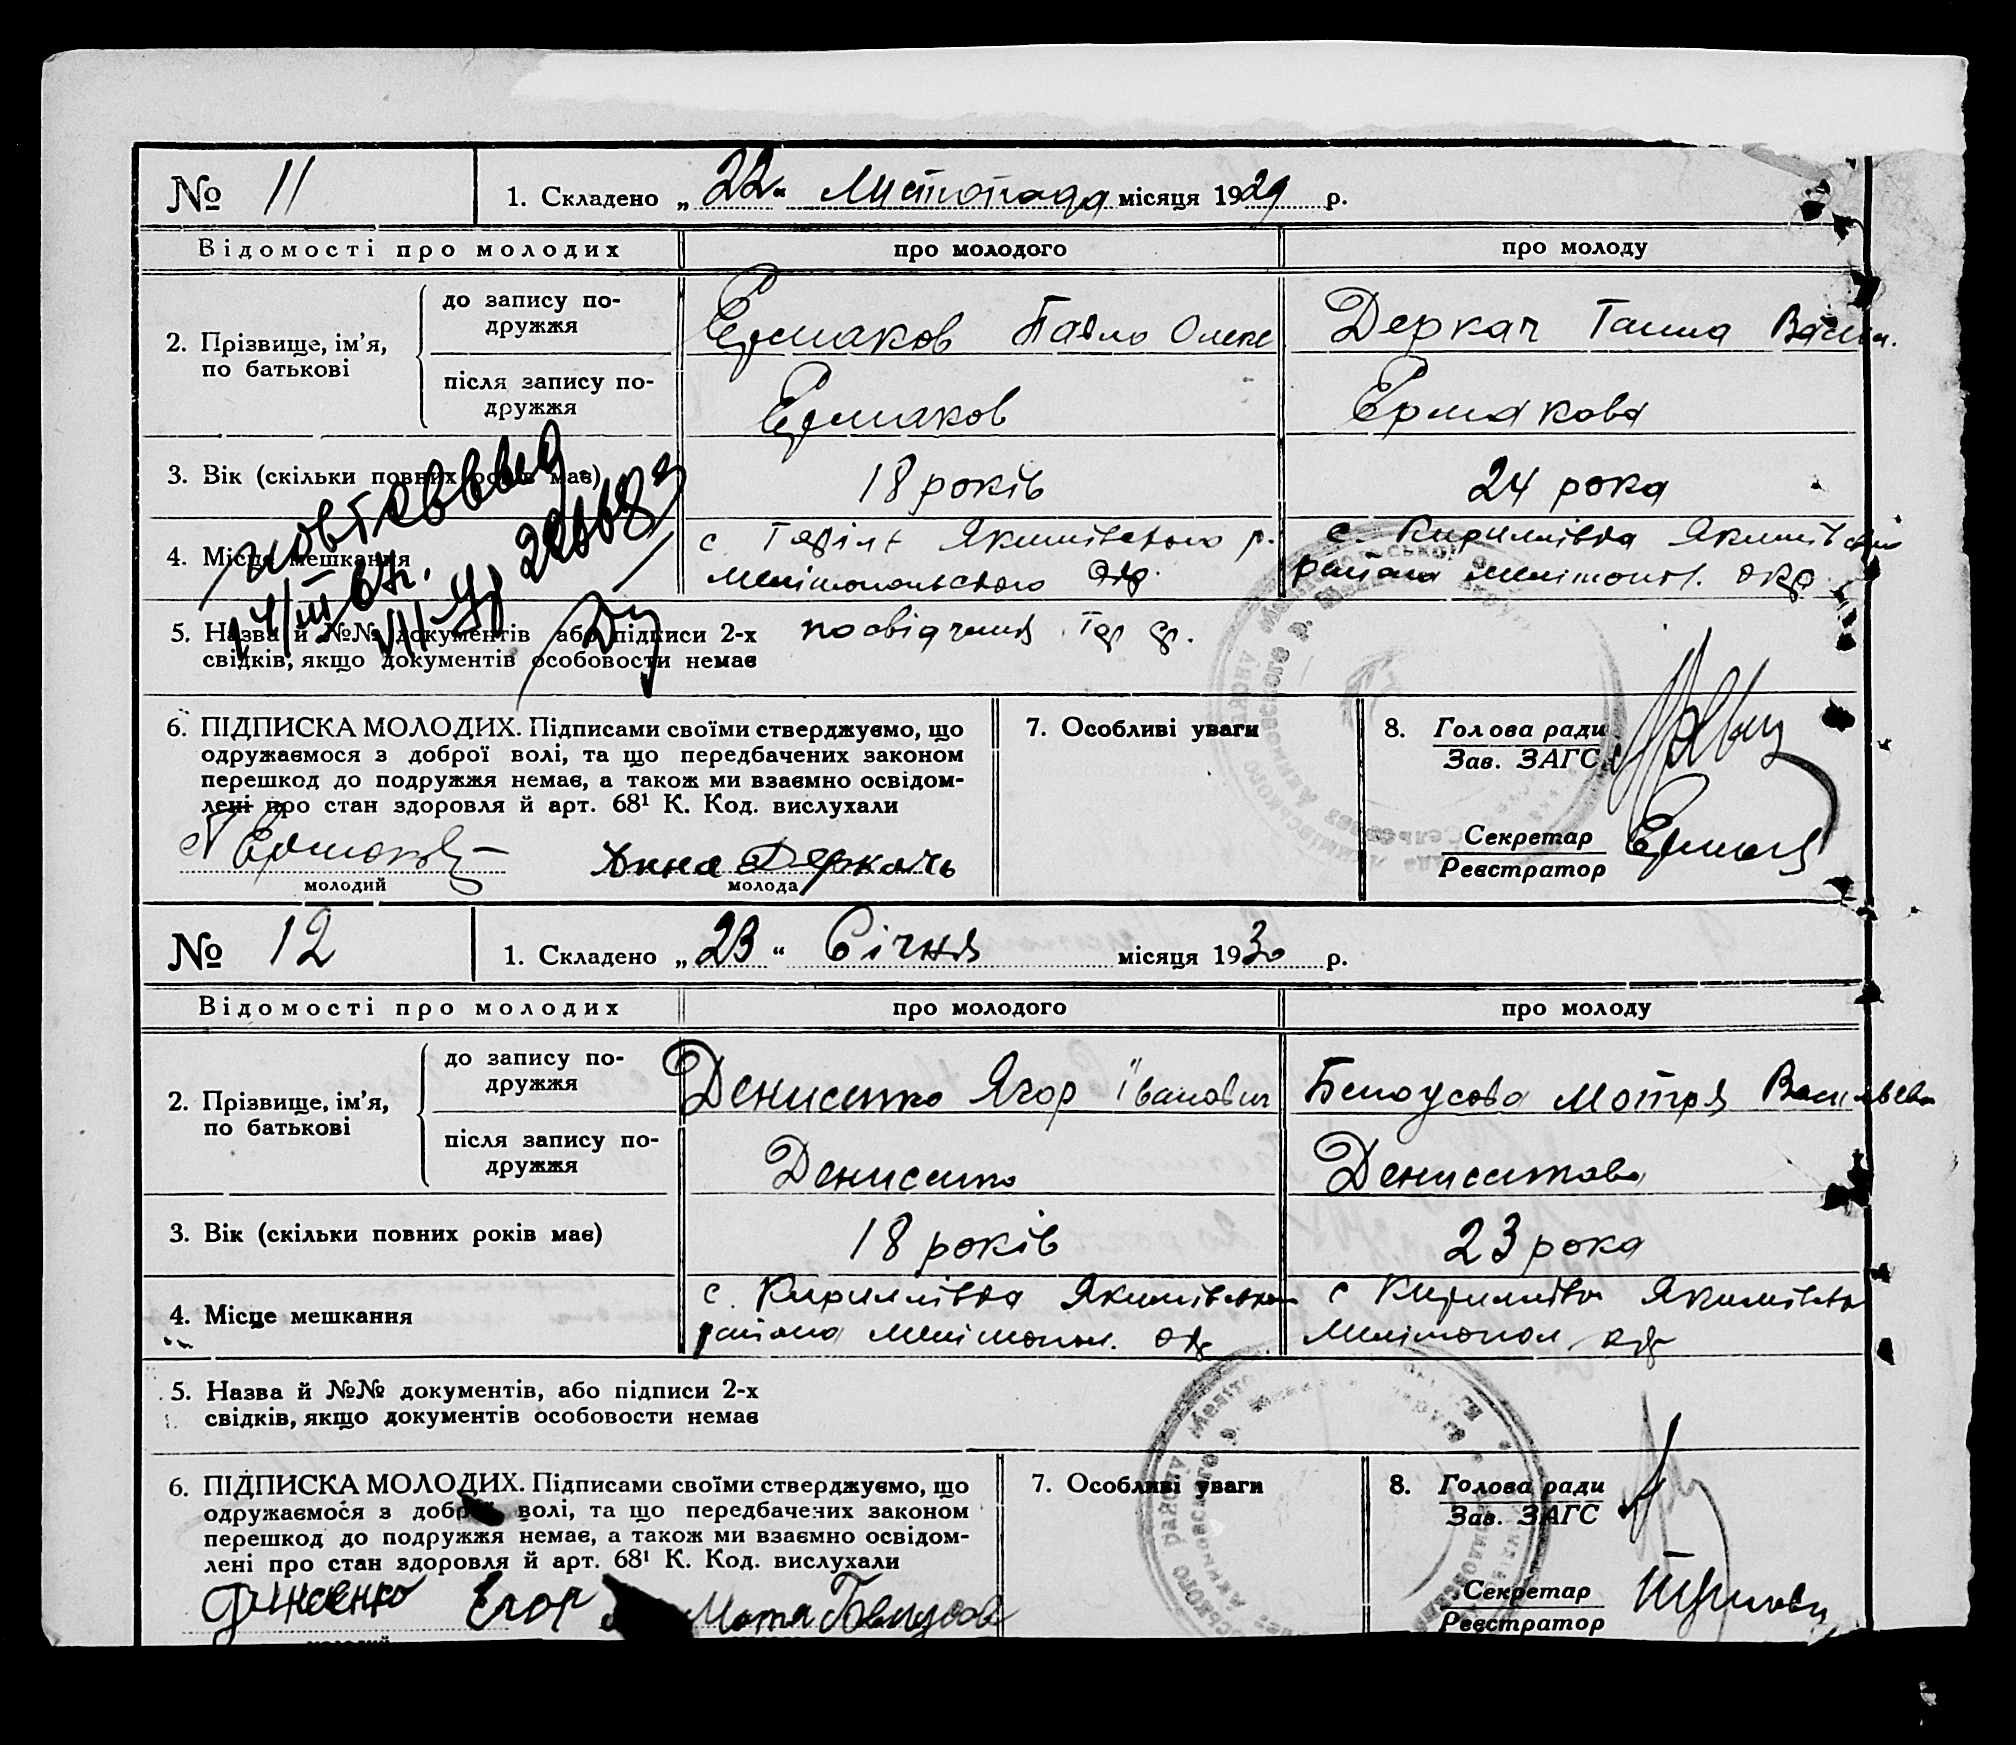 № 11
1. Складено „22“ Листопада місяця 1929 р.
Відомості про молодих про молодого про молоду
2. Прізвище, ім’я, по батькові
до запису по-
дружжя
Ермаков Павло Олекс
Деркач Ганна Васил.
після запису по-
дружжя
Ермаков
Ермакова
3. Вік (скільки повних років має)
18 років
24 рока
4. Місце мешкання
с. Якимівського р.
Мелітопольского окр.
с. Кириллівка Якимівсько
района Мелітопол. окр
5. Назва й №№ документів або підписи 2-х
свідків, якщо документів особовости немає
посвідчення
повт. выд
14/III 67г.
VII-УР
6. ПІДПИСКА МОЛОДИХ. Підписами своїми стверджуємо, що
одружаємося з доброї волі, та що передбачених законом
перешкод до подружжя немає, а також ми взаємно освідом-
лені про стан здоровля й арт. 68¹ К. Код. вислухали
Ермаков
молодий
Анна Деркачь
молода
7. Особливі уваги
8. Голова ради
Зав. ЗАГС
Секретар
Реєстратор
№ 12
1. Складено „23“ Січня місяця 1930 р.
Відомості про молодих про молодого про молоду
2. Прізвище, ім’я, по батькові
до запису по-
дружжя
Денисенко Ягор Іванович
Белоусова Мотря Васильевна
після запису по-
дружжя
Денисенко
Денисенкова
3. Вік (скільки повних років має)
18 років
23 рока
4. Місце мешкання
с. Кириллівка Якимівсько
района Мелітопол. окр
с Кириллівка Якимівсько
Мелітопол окр
5. Назва й №№ документів, або підписи 2-х
свідків, якщо документів особовости немає
6. ПІДПИСКА МОЛОДИХ. Підписами своїми стверджуємо, що
одружаємося з доброї волі, та що передбачених законом
перешкод до подружжя немає, а також ми взаємно освідом-
лені про стан здоровля й арт. 68¹ К. Код. вислухали
Егор
Мотя Белоусова
7. Особливі уваги
8. Голова ради
Зав. ЗАГС
Секретар
Реєстратор